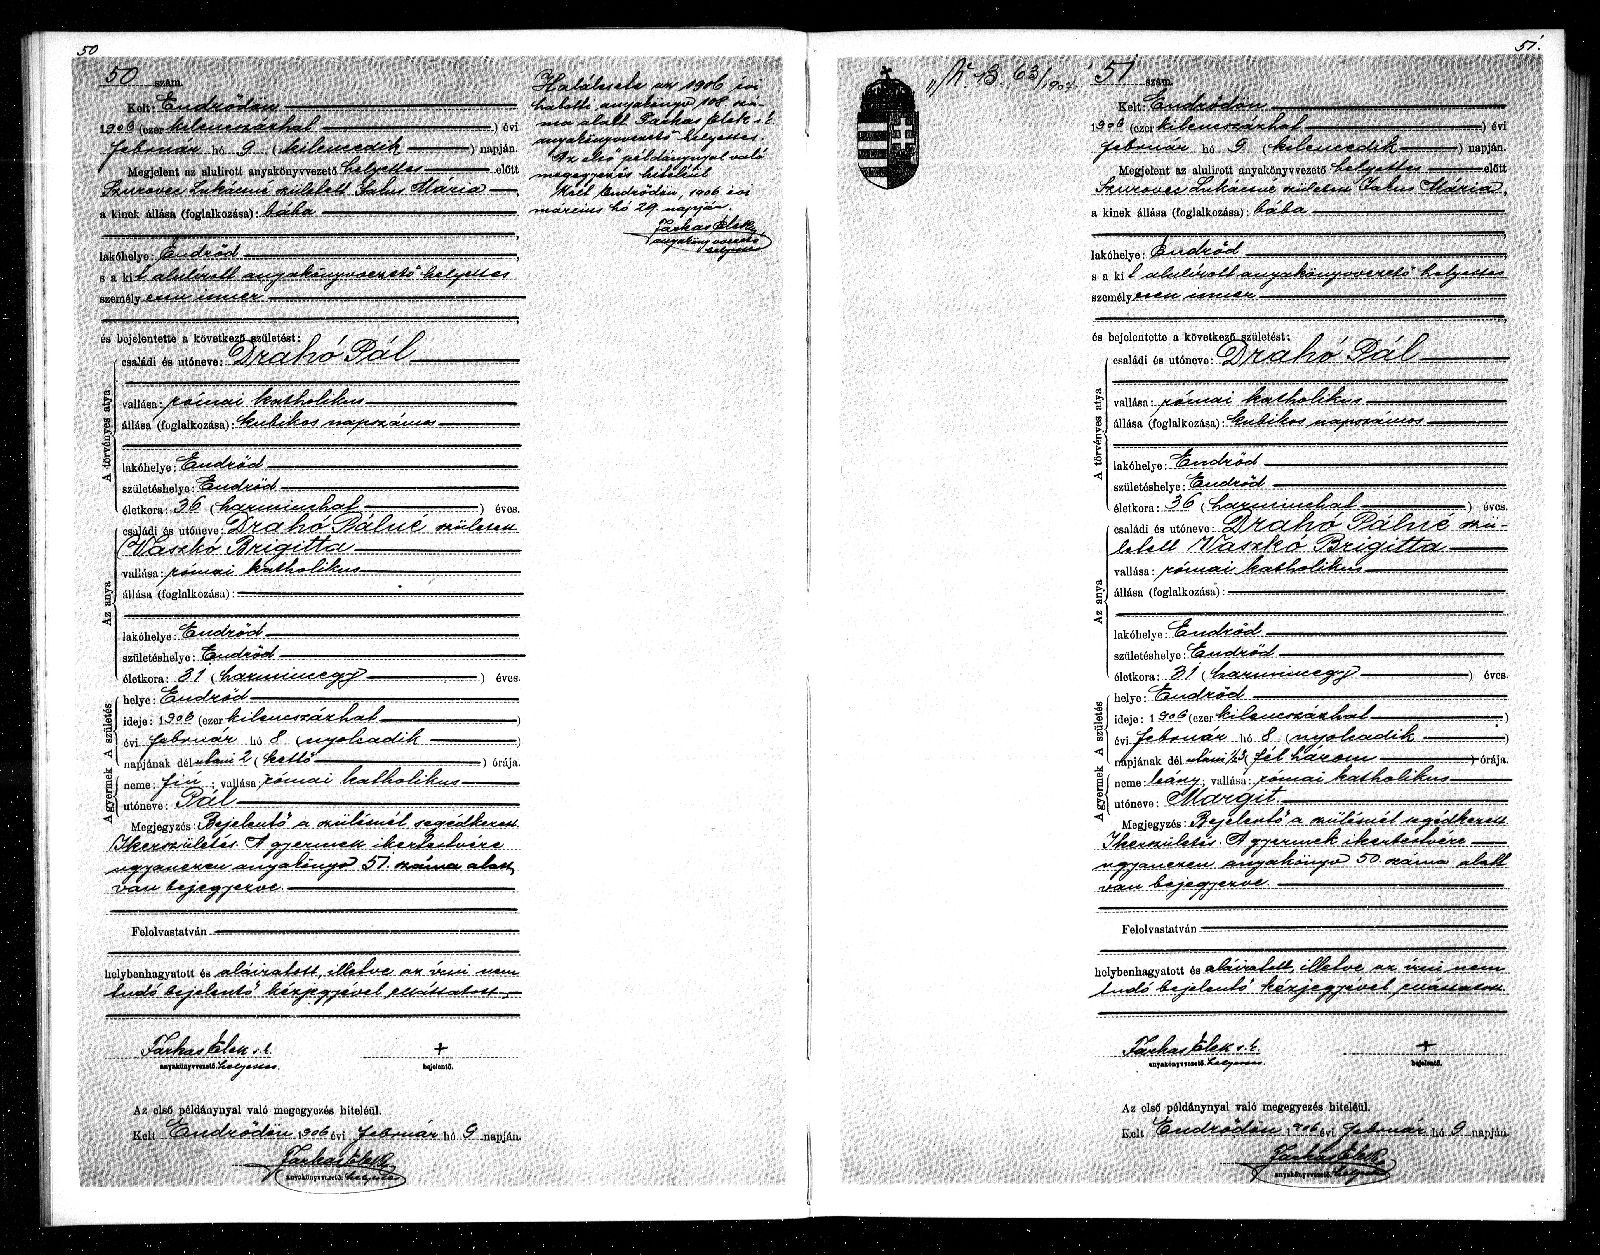 50
50 szám.
Kelt: Endrődön
1906 (ezer kilencszázhat) évi
február hó 9 (kilencedik) napján.
Megjelent az alulirott anyakönyvvezető helyettes előtt
Szurovec Lukácsné született Salus Mária,
a kinek állása (foglalkozása): bába
lakóhelye: Endrőd
s a kit alulirott anyakönyvvezető helyettes
személyesen ismer
és bejelentette a következő születést:
A törvényes atya
családi és utóneve: Drahó Pál
vallása: római katholikus
állása (foglalkozása): kubikos napszámos
lakóhelye: Endrőd
születéshelye: Endrőd
életkora: 36 (harminchat) éves.
Az anya
családi és utóneve: Drahó Pálné született
Vaszkó Brigitta
vallása: római katholikus
állása (foglalkozása):
lakóhelye: Endrőd
születéshelye: Endrőd
életkora: 31 (harmincegy) éves.
A gyermek A születés
helye: Endrőd
ideje: 1906 (ezer kilencszázhat)
évi február hó 8 (nyolcadik)
napjának délutáni 2 (kettő) órája.
neme: fiú; vallása: római katholikus
utóneve: Pál
Megjegyzés: Bejelentő a szülésnél segédkezett
Ikerszületés. A gyermek ikertestvére
ugyanezen anyakönyv 51. száma alatt
van bejegyezve.
Felolvastatván
helybenhagyatott és aláiratott, illetve az irni nem
tudó bejelentő kézjegyével elláttatott,
Farkas Elek s. k. +
anyakönyvvezető helyettes bejelentő.
Az első példánynyal való megegyezés hiteléül.
Kelt Endrődön 1906 évi február hó 9 napján.
Farkas Elek
anyakönyvvezető helyettes
Halálesete az 1906 évi
halotti anyakönyv 108 szá-
ma alatt Farkas Elek s. k.
anyakönyvvezető helyettes.
Az első példánynyal való
megegyezés hiteléül
Kelt Endrődön, 1906 évi
március hó 29. napján.
Farkas Elek
anyakönyvvezető
helyettes
51.
63/1907.
51 szám.
Kelt: Endrődön
1906 (ezer kilencszázhat) évi
február hó 9 (kilencedik) napján.
Megjelent az alulirott anyakönyvvezető helyettes előtt
Szurovec Lukácsné született Salus Mária,
a kinek állása (foglalkozása): bába
lakóhelye: Endrőd
s a kit alulirott anyakönyvvezető helyettes
személyesen ismer
és bejelentette a következő születést:
A törvényes atya
családi és utóneve: Drahó Pál
vallása: római katholikus
állása (foglalkozása): kubikos napszámos
lakóhelye: Endrőd
születéshelye: Endrőd
életkora: 36 (harminchat) éves.
Az anya
családi és utóneve: Drahó Pálné szü-
letett Vaszkó Brigitta
vallása: római katholikus
állása (foglalkozása):
lakóhelye: Endrőd
születéshelye: Endrőd
életkora: 31 (harmincegy) éves.
A gyermek A születés
helye: Endrőd
ideje: 1906 (ezer kilencszázhat)
évi február hó 8 (nyolcadik)
napjának délutáni 1/23 (fél három) órája.
neme: leány; vallása: római katholikus
utóneve: Margit
Megjegyzés: Bejelentő a szülésnél segédkezett
Ikerszületés. A gyermek ikertestvére
ugyanezen anyakönyv 50 száma alatt
van bejegyezve
Felolvastatván
helybenhagyatott és aláiratott, illetve az irni nem
tudó bejelentő kézjegyével elláttatott.
Farkas Elek s. k. +
anyakönyvvezető helyettes bejelentő.
Az első példánynyal való megegyezés hiteléül.
Kelt Endrődön 1906 évi február hó 9 napján.
Farkas Elek
anyakönyvvezető helyettes